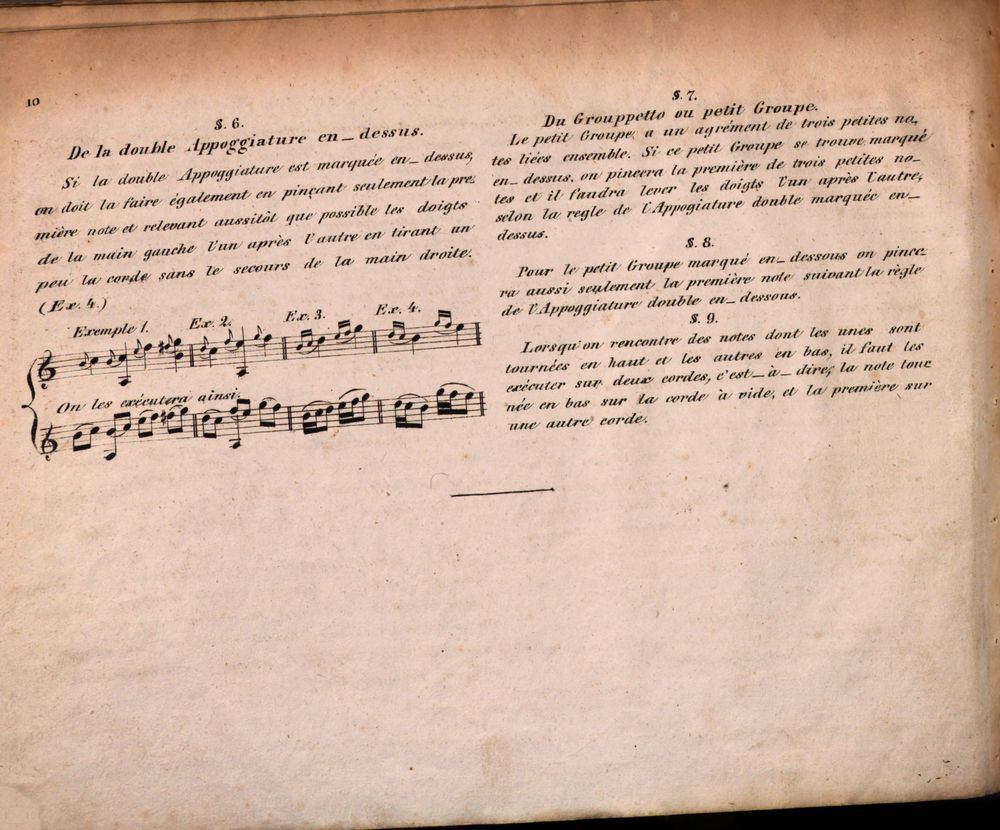 10
§. 6.
De la double Appoggiature en_dessus.
Si la double Appoggiature est marquée en_dessus,
on doit la faire également en pinçant seulement la pre_
mière note et relevant aussitôt que possible les doigts
de la main gauche l'un après l'autre en tirant un
peu la corde sans le secours de la main droite.
(Ex. 4.)
Exemple 1. Ex. 2. Ex. 3. Ex. 4.
On les exécutera ainsi.
§. 7.
Du Grouppetto ou petit Groupe.
Le petit Groupe a un agrément de trois petites no_
tes liées ensemble. Si ce petit Groupe se trouve marqué
en_dessus, on pincera la première de trois petites no_
tes et il faudra lever les doigts l'un après l'autre,
selon la regle de l'Appogiature double marquée en_
dessus.
§. 8.
Pour le petit Groupe marqué en_dessous on pince_
ra aussi seulement la première note suivant la règle
de l'Appoggiature double en_dessous.
§. 9.
Lorsqu'on rencontre des notes dont les unes sont
tournées en haut et les autres en bas, il faut les
exécuter sur deux cordes, c'est_à_dire, la note tour_
née en bas sur la corde à vide, et la première sur
une autre corde.